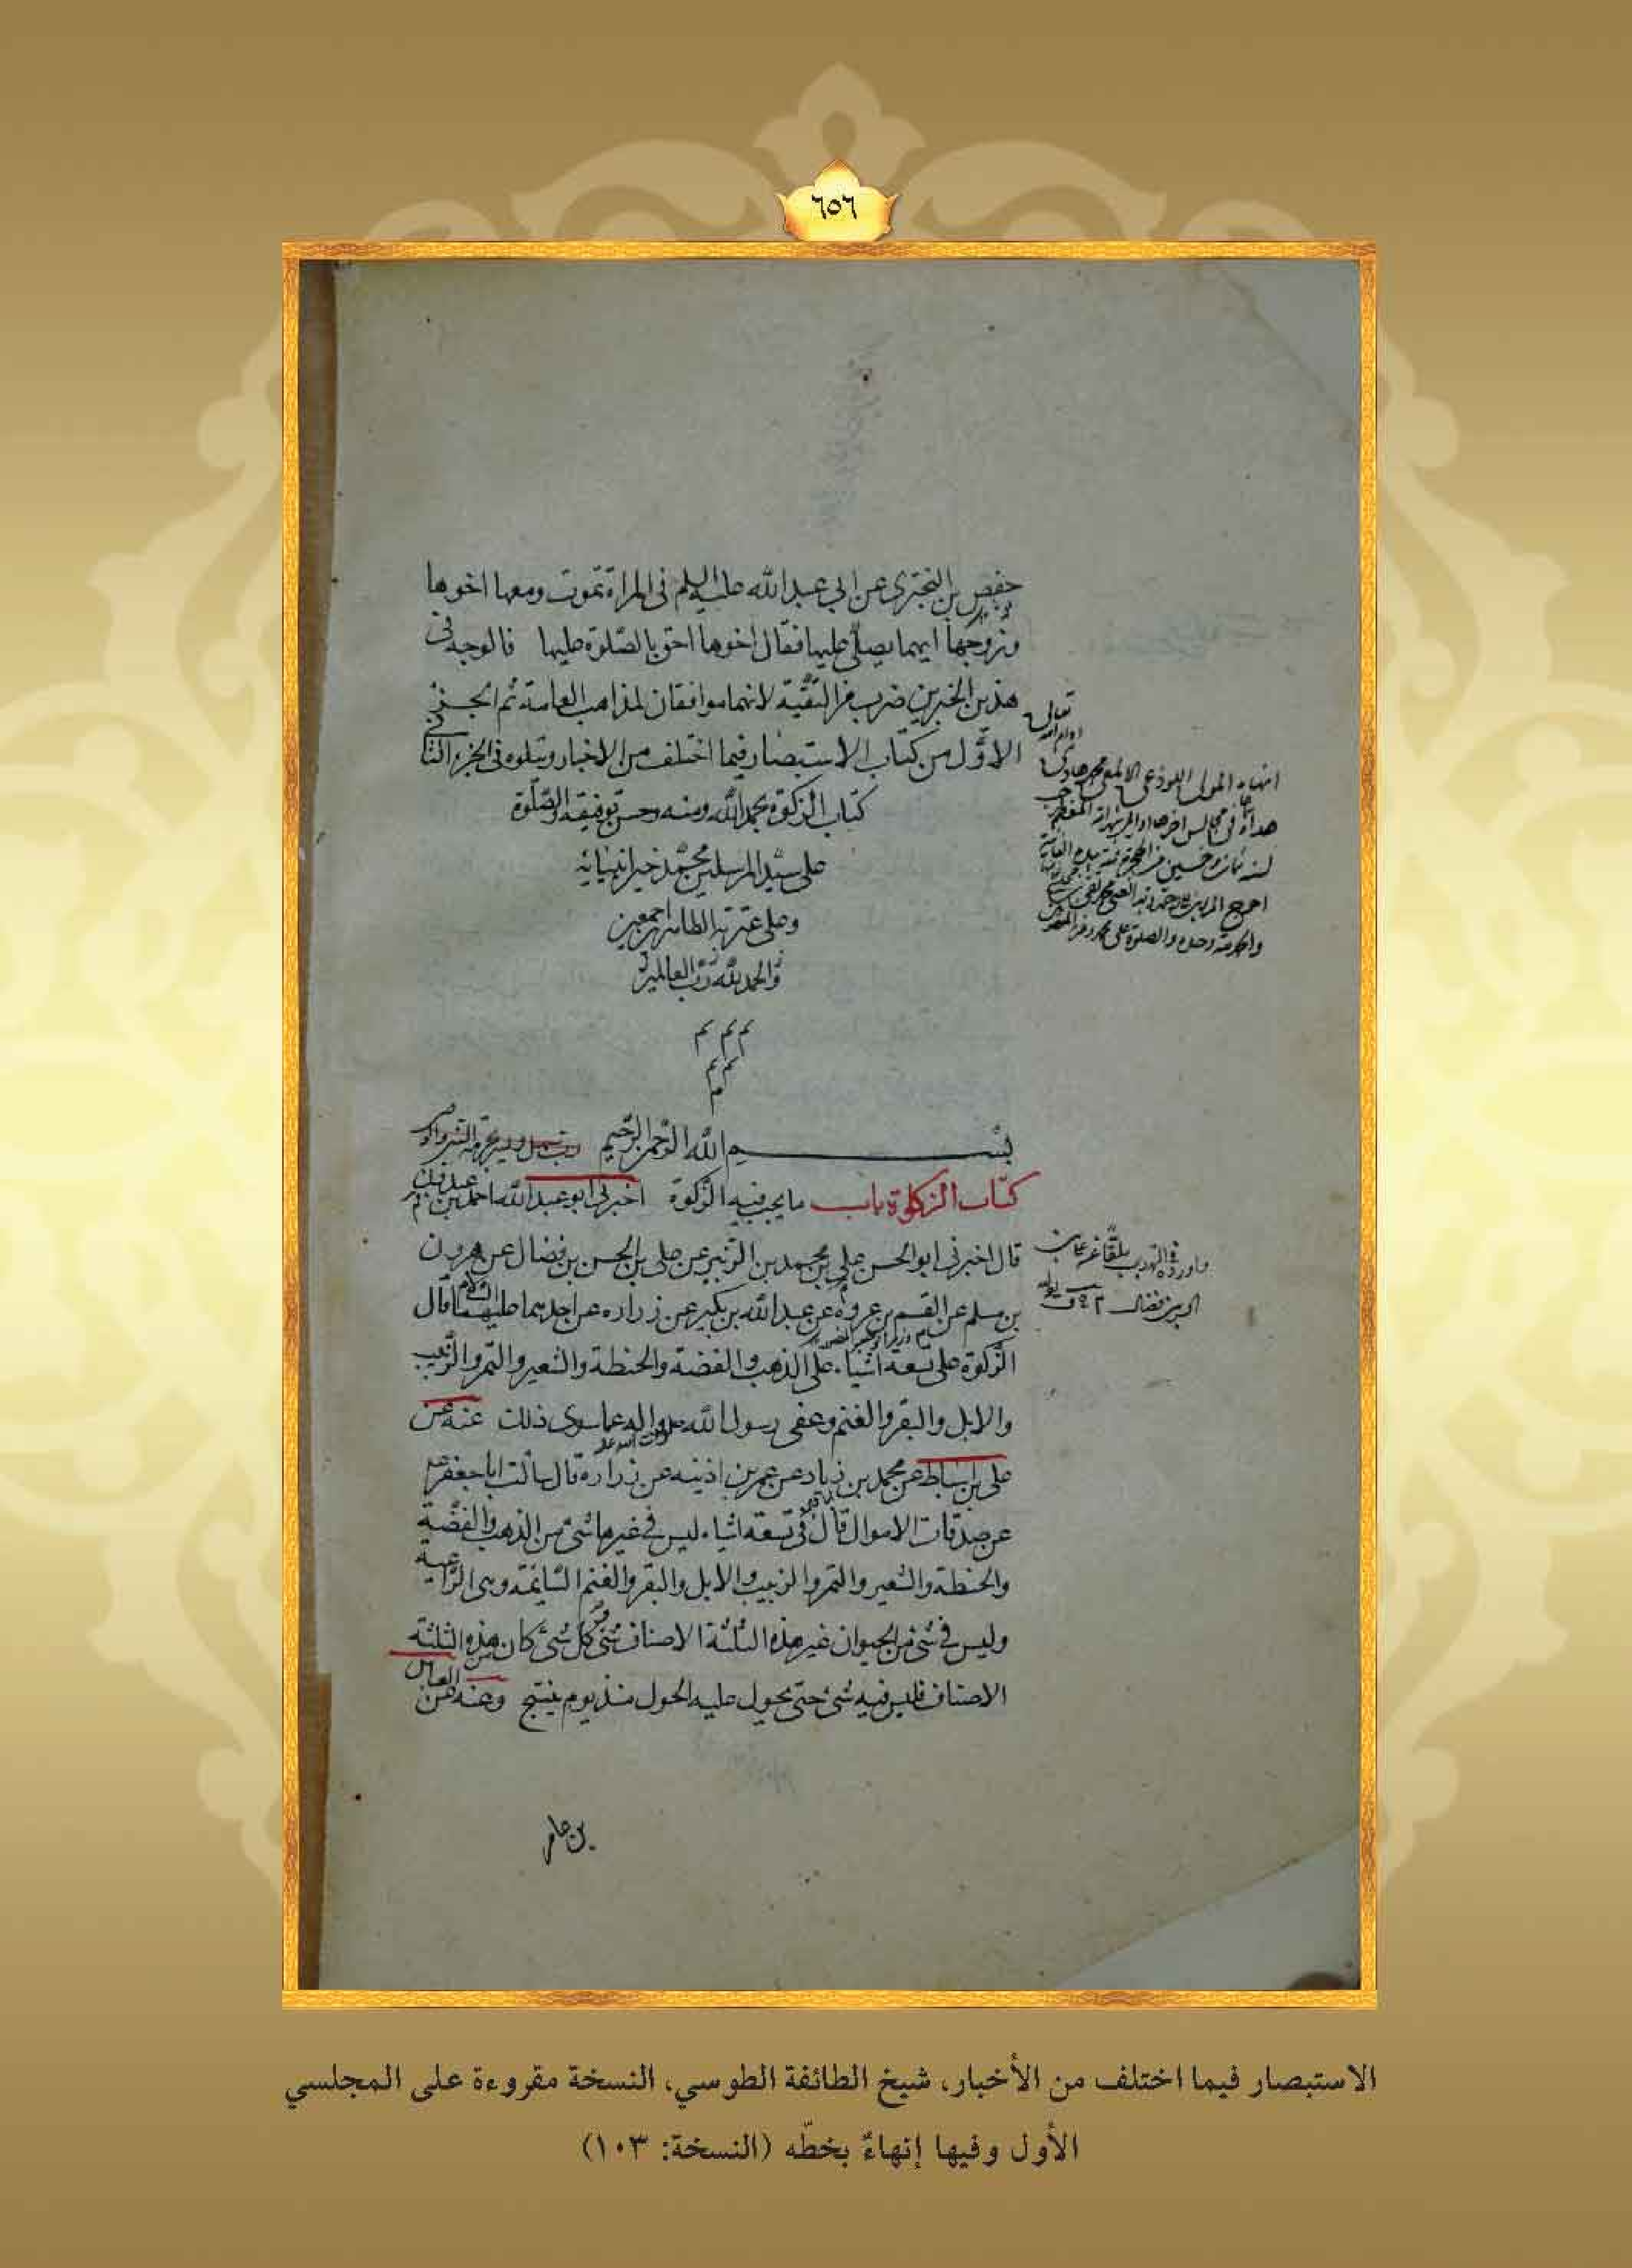 ٦٥٦
حفص بن البختري عن ابي عبد الله عليه السلم في المراة تموت ومعها اخوها
وزوجها ايهما يصلي عليها فقال اخوها احق بالصلوة عليها فالوجه في
هذين الخبرين ضرب من التقية لانهما موافقان لمذاهب العامة تم الجزء
الاول من كتاب الاستبصار فيما اختلف من الاخبار ويتلوه في الجزء الثاني
كتاب الزكوة بحمد الله ومنه وحسن توفيقه والصلوة
على سيد المرسلين محمد خير انبيائه
وعلى عترته الطاهرين اجمعين
والحمد لله رب العالمين
تعالى
ادام الله
انهاه المولى
في مجالس اخرها
والحمد لله وحده والصلوة على محمد
بسم الله الرحمن الرحيم
كتاب الزكوة باب ما يجب فيه الزكوة اخبرني ابو عبد الله احمد بن عبدون
قال اخبرني ابو الحسن علي بن محمد بن الزبير عن علي بن الحسن بن فضال عن هرون
بن مسلم عن القسم بن عروة عن عبد الله بن بكير عن زراره عن احدهما عليهما السلام قال
الزكوة على تسعة اشياء على الذهب والفضة والحنطة والشعير والتمر والزبيب
والابل والبقر والغنم وعفى رسول الله صلى الله عليه واله عما سوى ذلك عنه عن
على بن اسباط عن محمد بن زياد عن عمر بن اذينه عن زرارة قال سالت ابا جعفر
عن صدقات الاموال قال في تسعة اشياء ليس في غيرها شئ من الذهب والفضة
والحنطة والشعير والتمر والزبيب والابل والبقر والغنم السائمة وهي الراعية
وليس في شئ من الحيوان غير هذه الثلثة الاصناف شئ وكل شئ كان من هذه الثلثة
الاصناف فليس فيه شئ حتى يحول عليه الحول منذ يوم ينتج وعنه عن العباس
بن عامر
الاستبصار فيما اختلف من الأخبار، شيخ الطائفة الطوسي، النسخة مقروءة على المجلسي
الأول وفيها إنهاءٌ بخطّه (النسخة: ١٠٣)